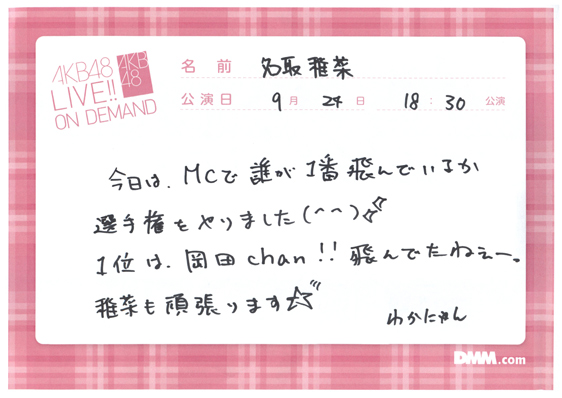 AKB48
LIVE!!
ON DEMAND
AKB
48
名前 名取稚菜
公演日 9月 24日 18:30 公演
今日は、MCで誰が1番飛んでいるか
選手権をやりました(^^)
1位は、岡田chan!!飛んでたねぇー。
稚菜も頑張ります☆
わかにゃん
DMM.com